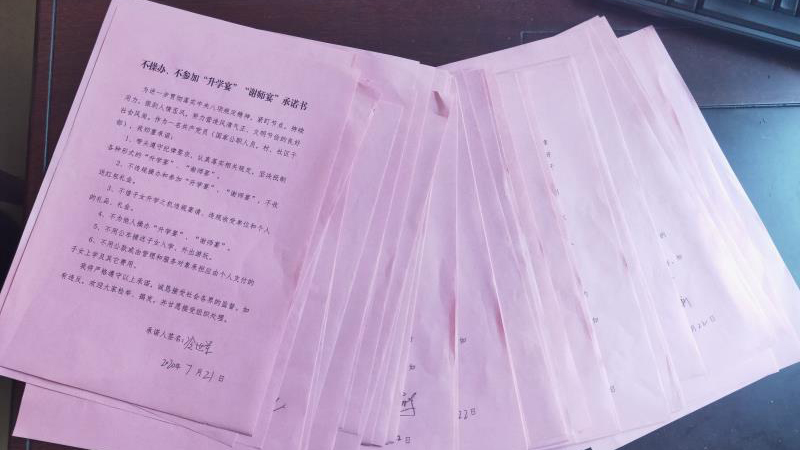 不操办、不参加“升学宴”“谢师宴”承诺书
为进一步贯彻落实中央八项规定精神，紧盯节点，持续
用力，狠刹人情歪风，努力营造风清气正、文明节俭的良好
社会风尚。作为一名共产党员（国家公职人员，村、社区干
部），我郑重承诺：
1、带头遵守纪律要求，认真落实相关规定，坚决抵制
各种形式的“升学宴”、“谢师宴”。
2、不违规操办和参加“升学宴”、“谢师宴”，不收
送红包礼金。
3、不借子女升学之机违规宴请、违规收受单位和个人
的礼品、礼金。
4、不为他人操办“升学宴”、“谢师宴”。
5、不用公车接送子女入学、外出游玩。
6、不用公款或由管理和服务对象承担应由个人支付的
子女上学及其它费用。
我将严格遵守以上承诺，诚恳接受社会各界的监督，如
有违反，欢迎大家检举、揭发，并甘愿接受组织处理。
承诺人签名：
2020年 7月23日
如
2日
如
23日
的
如
月22日